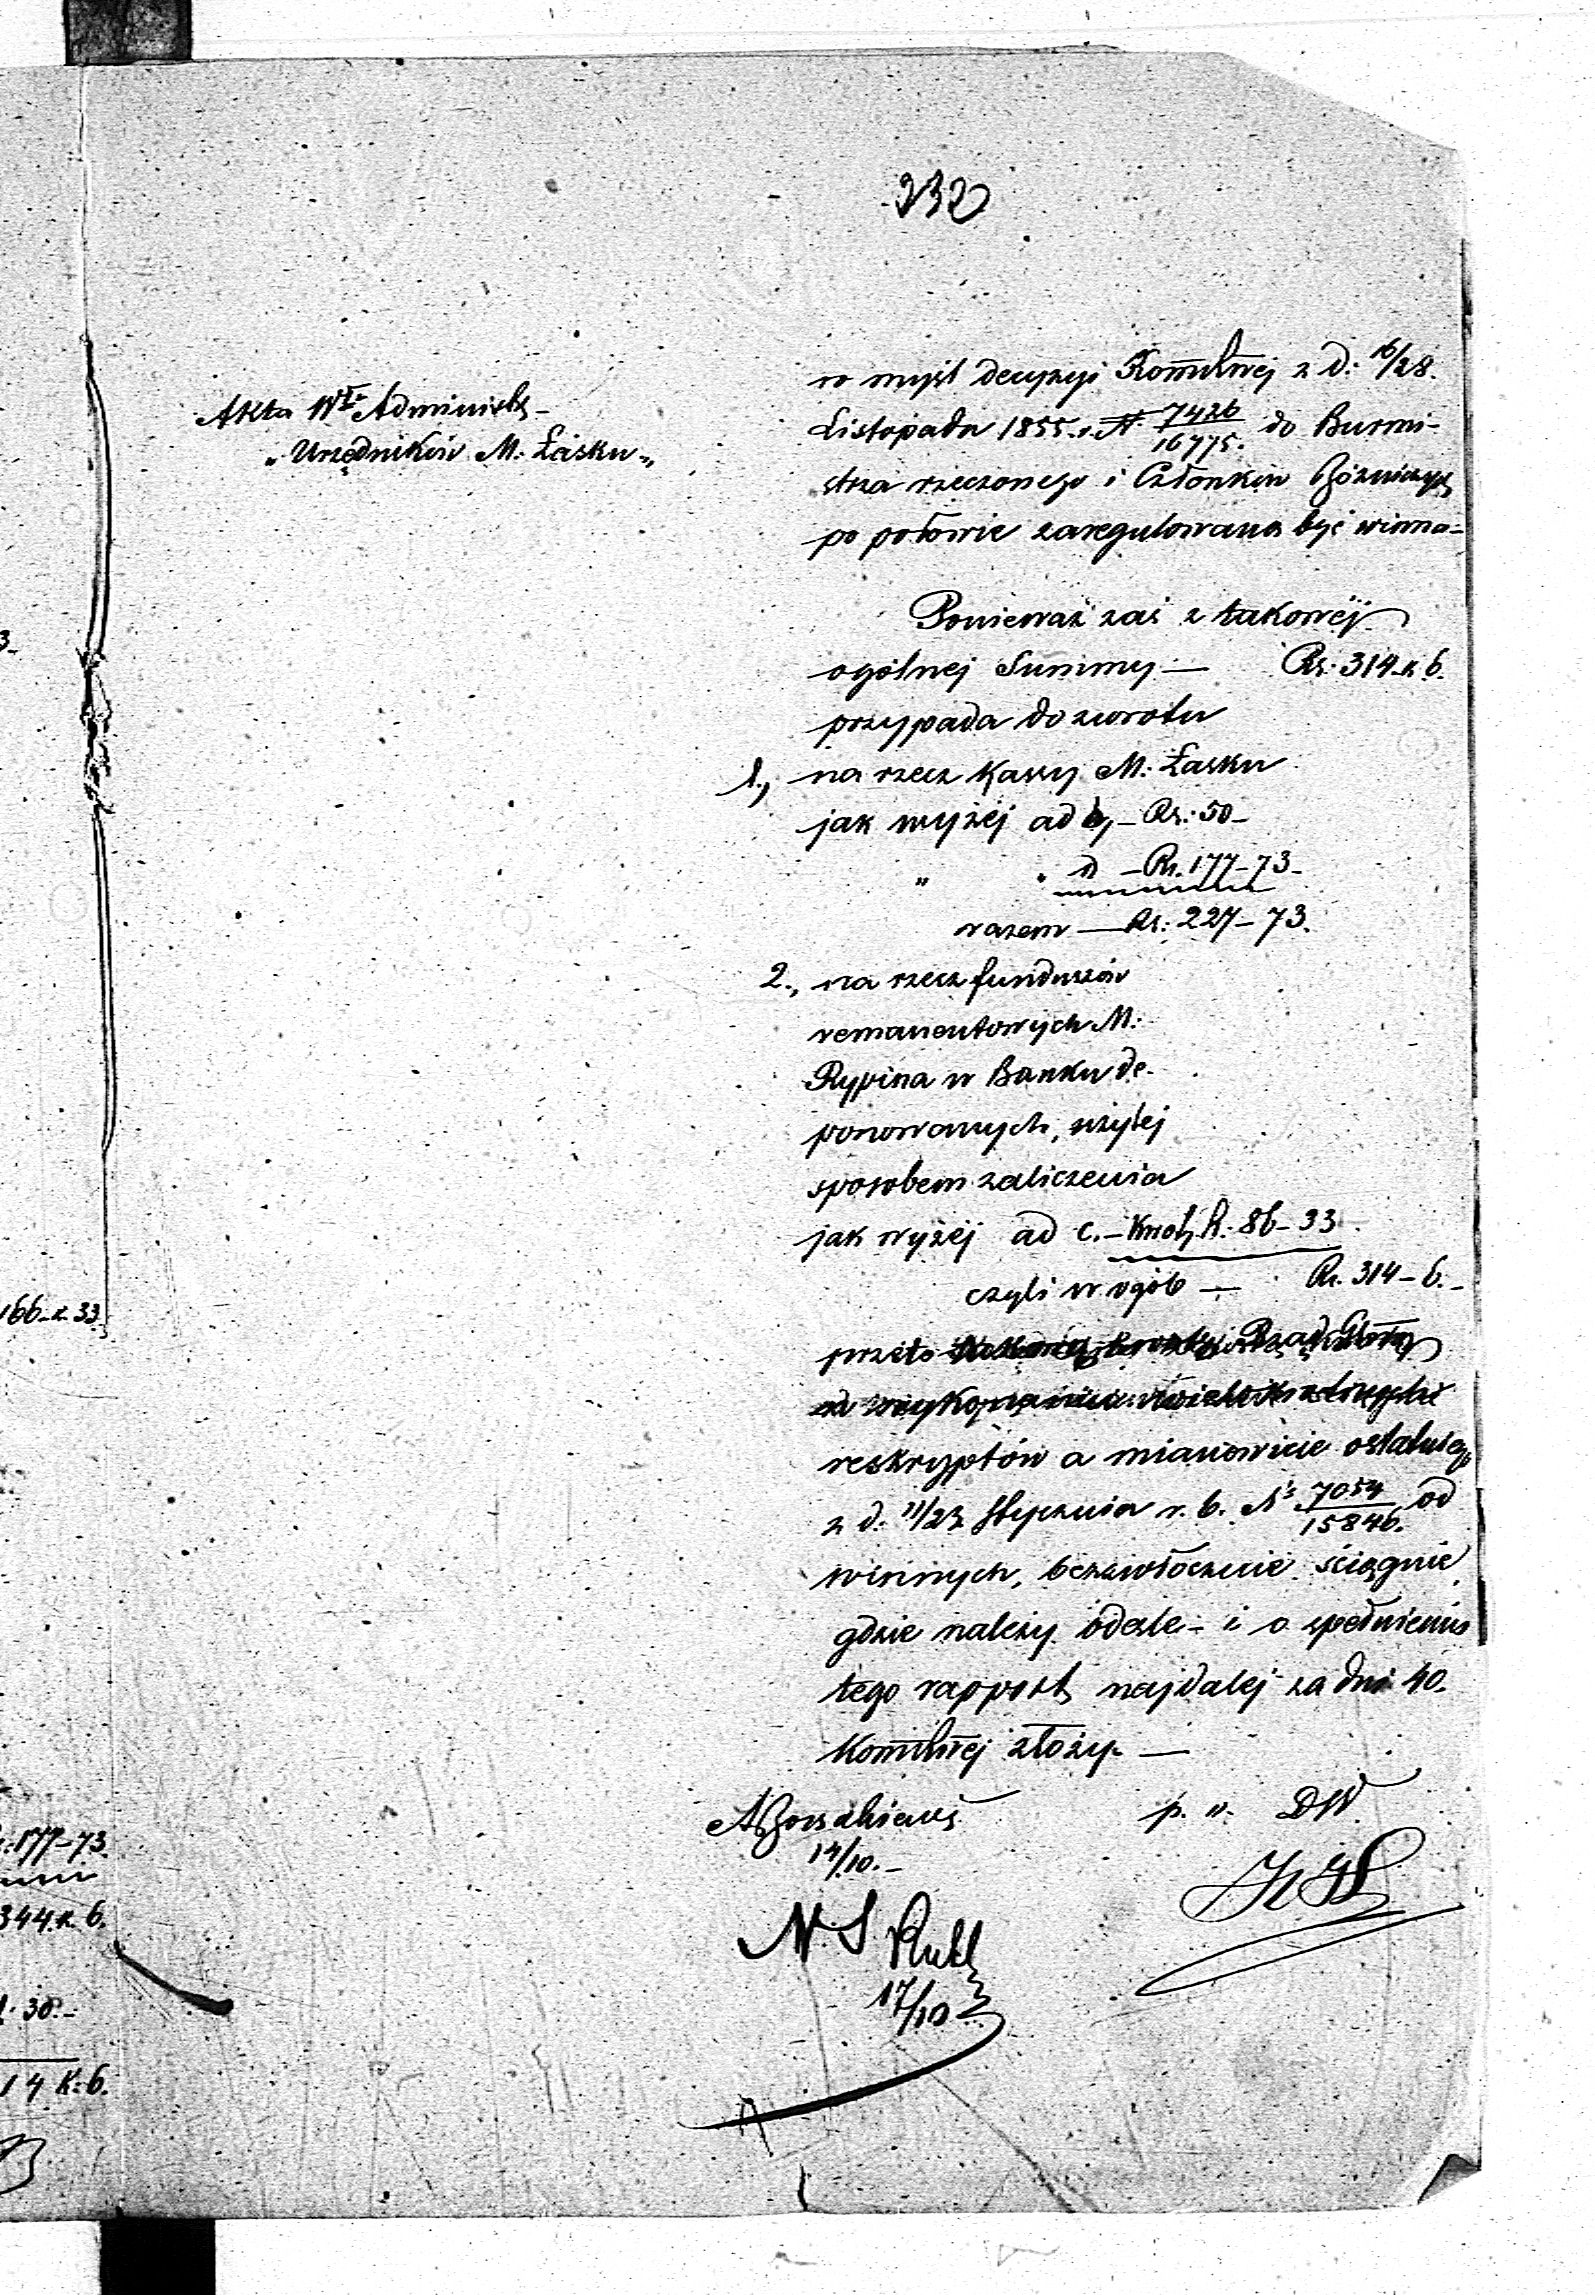 232
Akta Wł Administr.
"Urzędników M. Łasku"
w myśl decyzyi Kommssnej z d: 16/28.
Listopada 1855. r. N 7426/16775. do Burmi-
strza rzeczonego i Członków Bóżniczych
po połowie zaregulowana być winna-
Ponieważ zaś z takowéj
ogólnej Summy — Rs. 314 k 6.
przypada do zwrotu
1., na rzecz Kassy M. Łasku
jak wyżéj ad b, - Rs: 50 -
" " d - Rs. 177-73-
razem — Rs: 227-73.
2., na rzecz funduszów
remanentowych M:
Rypina w Banku de-
ponowanych, użytej
sposobem zaliczenia
jak wyżéj ad c. - Rs: 86-33
czyli w ogóle — Rs. 314-6.-
przeto
reskryptów a mianowicie ostatniego
z d. 11/23 Stycznia r. b. N 7054/15846. od
winnych, bezzwłocznie ściągnie
gdzie należy odeśle - i o spełnieniu
tego rapport najdalej za dni 40.
złoży. —
14/10.-
p. o. DW
N. S.
17/10
166 - k. 33
177-73
344. k. 6.
30.-
14 K: 6.